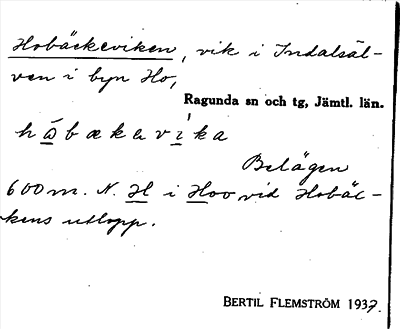 Hobäckeviken, vik i Indalsäl-
ven i byn Ho,
Ragunda sn och tg, Jämtl. län.
hå̀bækevi̍ka
Belägen
600 m. N. H i Hoo vid Hobäc-
kens utlopp.
BERTIL FLEMSTRÖM 1937.